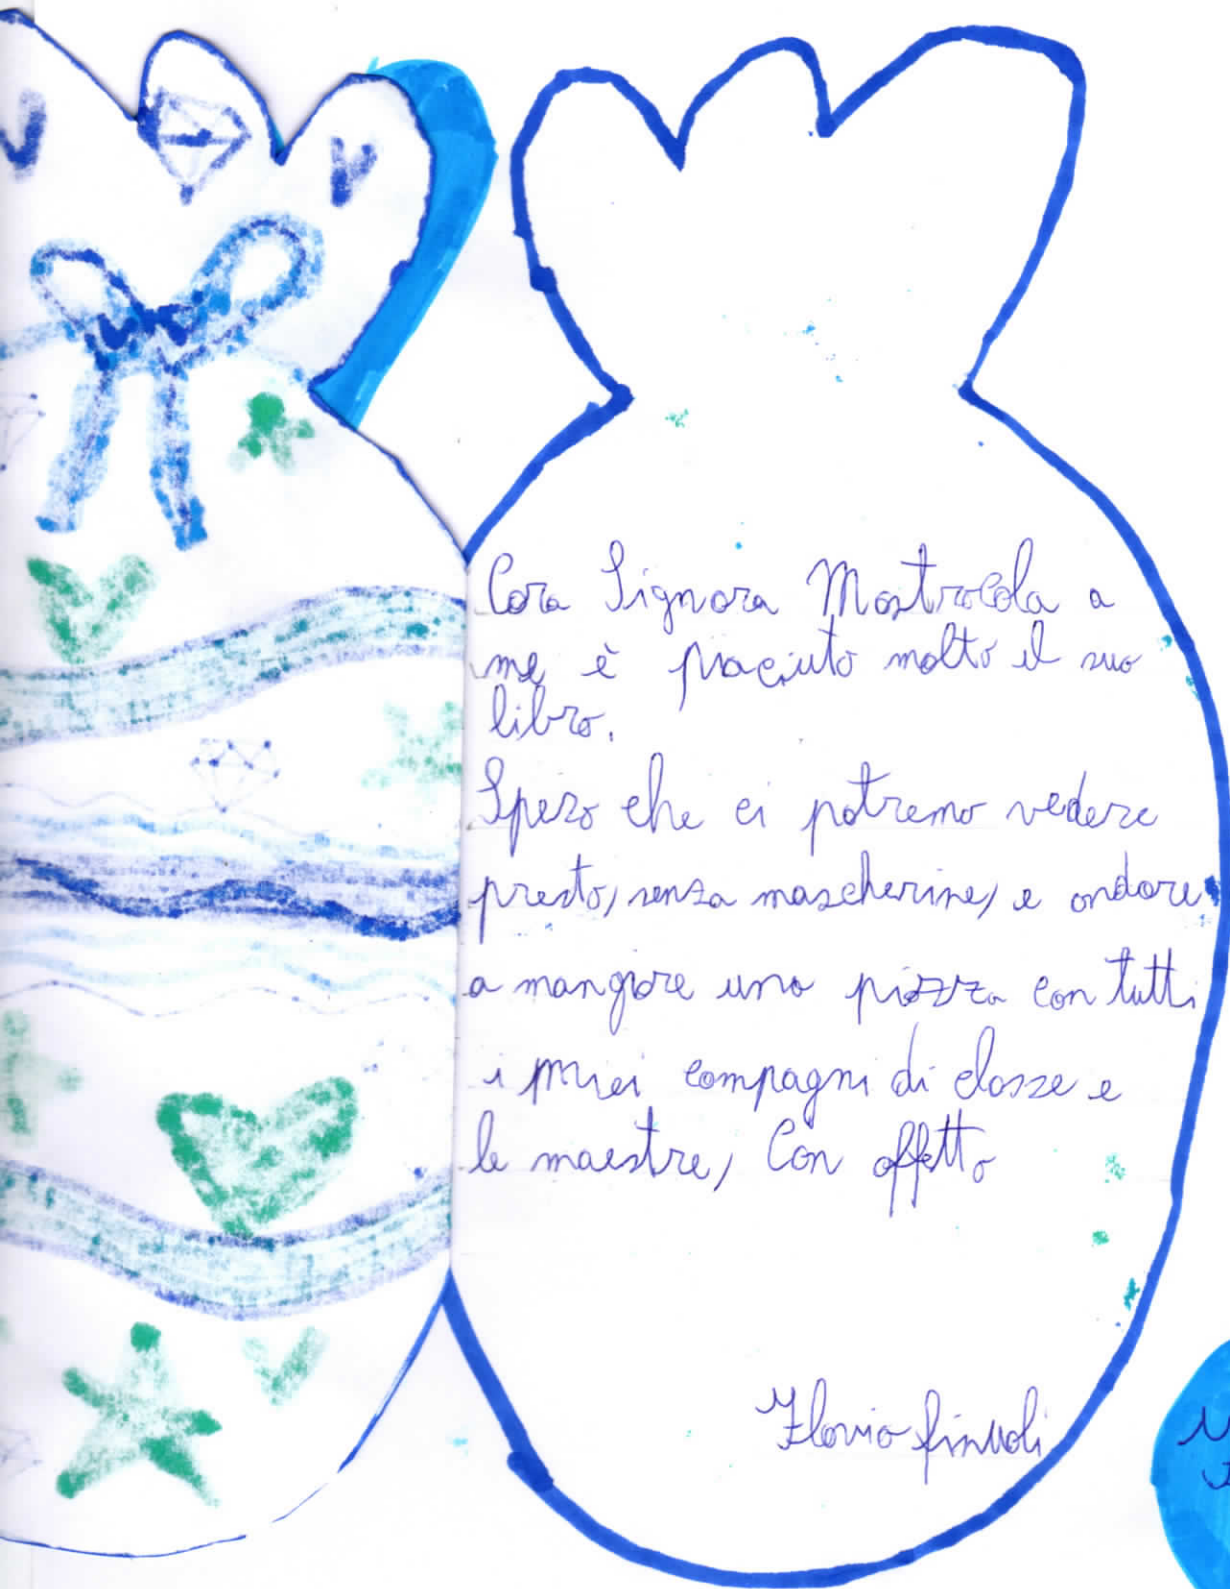 Cara Signora Mastrocola a
me è piaciuto molto il suo
libro.
Spero che ci potremo vedere
presto, senza mascherine, e andare
a mangiare una pizza con tutti
i miei compagni di classe e
le maestre, Con affetto
Flavio